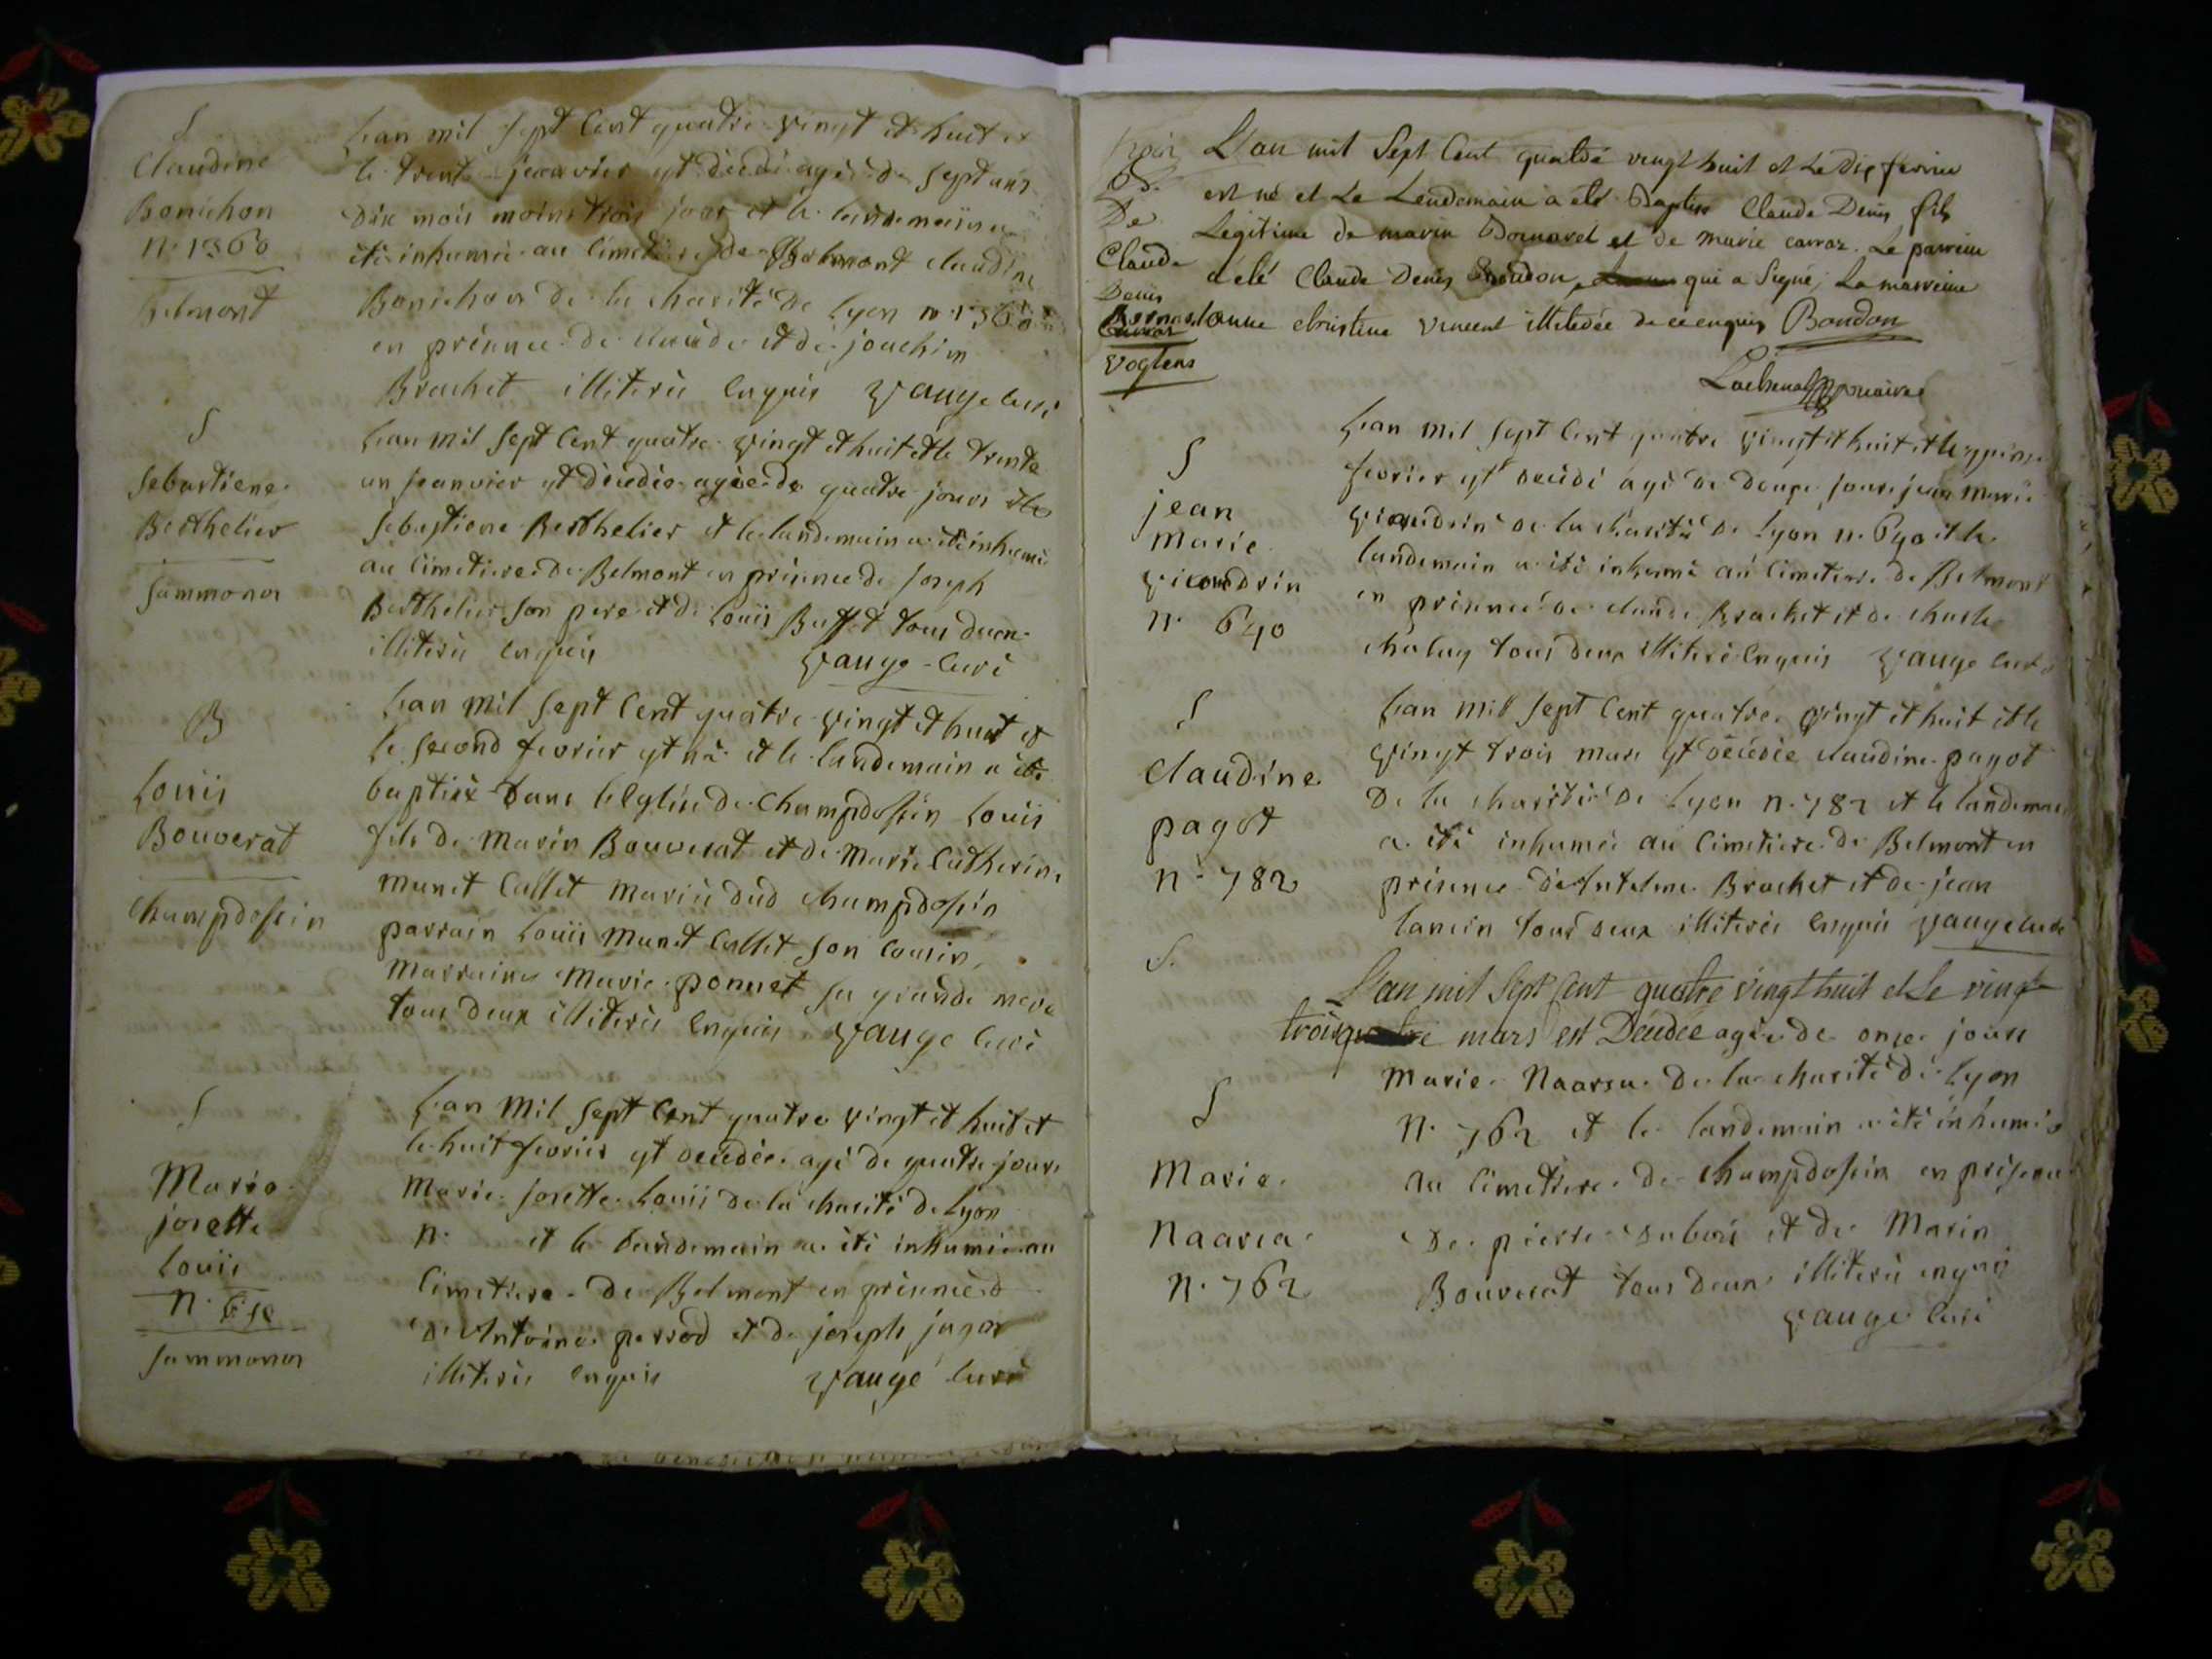 S
Claudine
Bonichon
n. 1360
Belmont
Lan mil sept Cent quatre vingt et huit et
le trente janvier est décédé agée de sept ans
dix mois moins trois jour et le landemain a
été inhumée au Cimetiere de Belmont claudine
Bonichon de la charité de Lyon n. 1360
en présence de claude et de joachim
Brachet illiterés enquis Vauge curé
S
sebastiene
Berthelier
sammonor
Lan mil sept Cent quatre vingt et huit et le trente
un janvier est décédée agée de quatre jours
sebastiene Berthelier et le landemain a été inhumé
au Cimetiere de Belmont en présence de joseph
Berthelier son pere et de Louis Buffet tous deux
illiterés enquis Vauge curé
B
Louis
Bouverat
champdossin
Lan mil sept Cent quatre vingt et huit et
le second fevrier est né et le landemain a été
baptisé dans l'Eglise de Champdossin Louis
fils de Marin Bouverat et de Marie Catherine
Munet Callet mariés dud champdossin
parrain Louis Munet Callet son Cousin,
Marraine Marie ponnet sa grande mere
tous deux illiterés enquis Vauge curé
S
Marie
josette
Louis
n.
sammonor
Lan mil sept Cent quatre vingt et huit et
le huit fevrier est décédée agé de quatre jours
Marie josette Louis de la charité de Lyon
n. et le landemain a été inhumé au
Cimetiere de Belmont en présence
d'Antoine perrod et de joseph
illiterés enquis Vauge curé
B.
De
Claude
Denis
Vogtens
L'an mil Sept Cent quatre vingt huit et Le Dix fevrier
est né et Le Lendemain a été Baptisé Claude Denis fils
Legitime de marin Bornarel et de marie carraz. Le parrein
a été Claude Denis Bondon, qui a Signé; La marreine
Christine Vincent illeterée de ce enquis Bondon
S
jean
marie
Viaudrin
n. 640
Lan mil sept Cent quatre vingt et huit et le
fevrier est décédé agé de douze jours jean marie
Viaudrin de la charité de Lyon n. 640 et le
landemain a été inhumé au Cimetiere de Belmont
en présence de claude Brachet et de charle
chaluy tous deux illiteré enquis Vauge curé
S
claudine
pagot
n. 782
Lan mil sept Cent quatre vingt et huit et le
vingt trois mars est décédée claudine pagot
de la charité de Lyon n. 782 et le landemain
a été inhumée au Cimetiere de Belmont en
présence d'Antelme Brachet et de jean
lancin tous deux illiterés enquis Vauge curé
S.
L'an mil Sept Cent quatre vingt huit et Le vingt
trois mars est Décédée agée de onze jours
marie Naarsa de la charité de Lyon
n. 762 et le landemain a été inhumé
au Cimetiere de champdossin en présence
de pierre Dubois et de Marin
Bouverat tous deux illiterés enquis
Vauge curé
S
Marie
Naarsa
n. 762